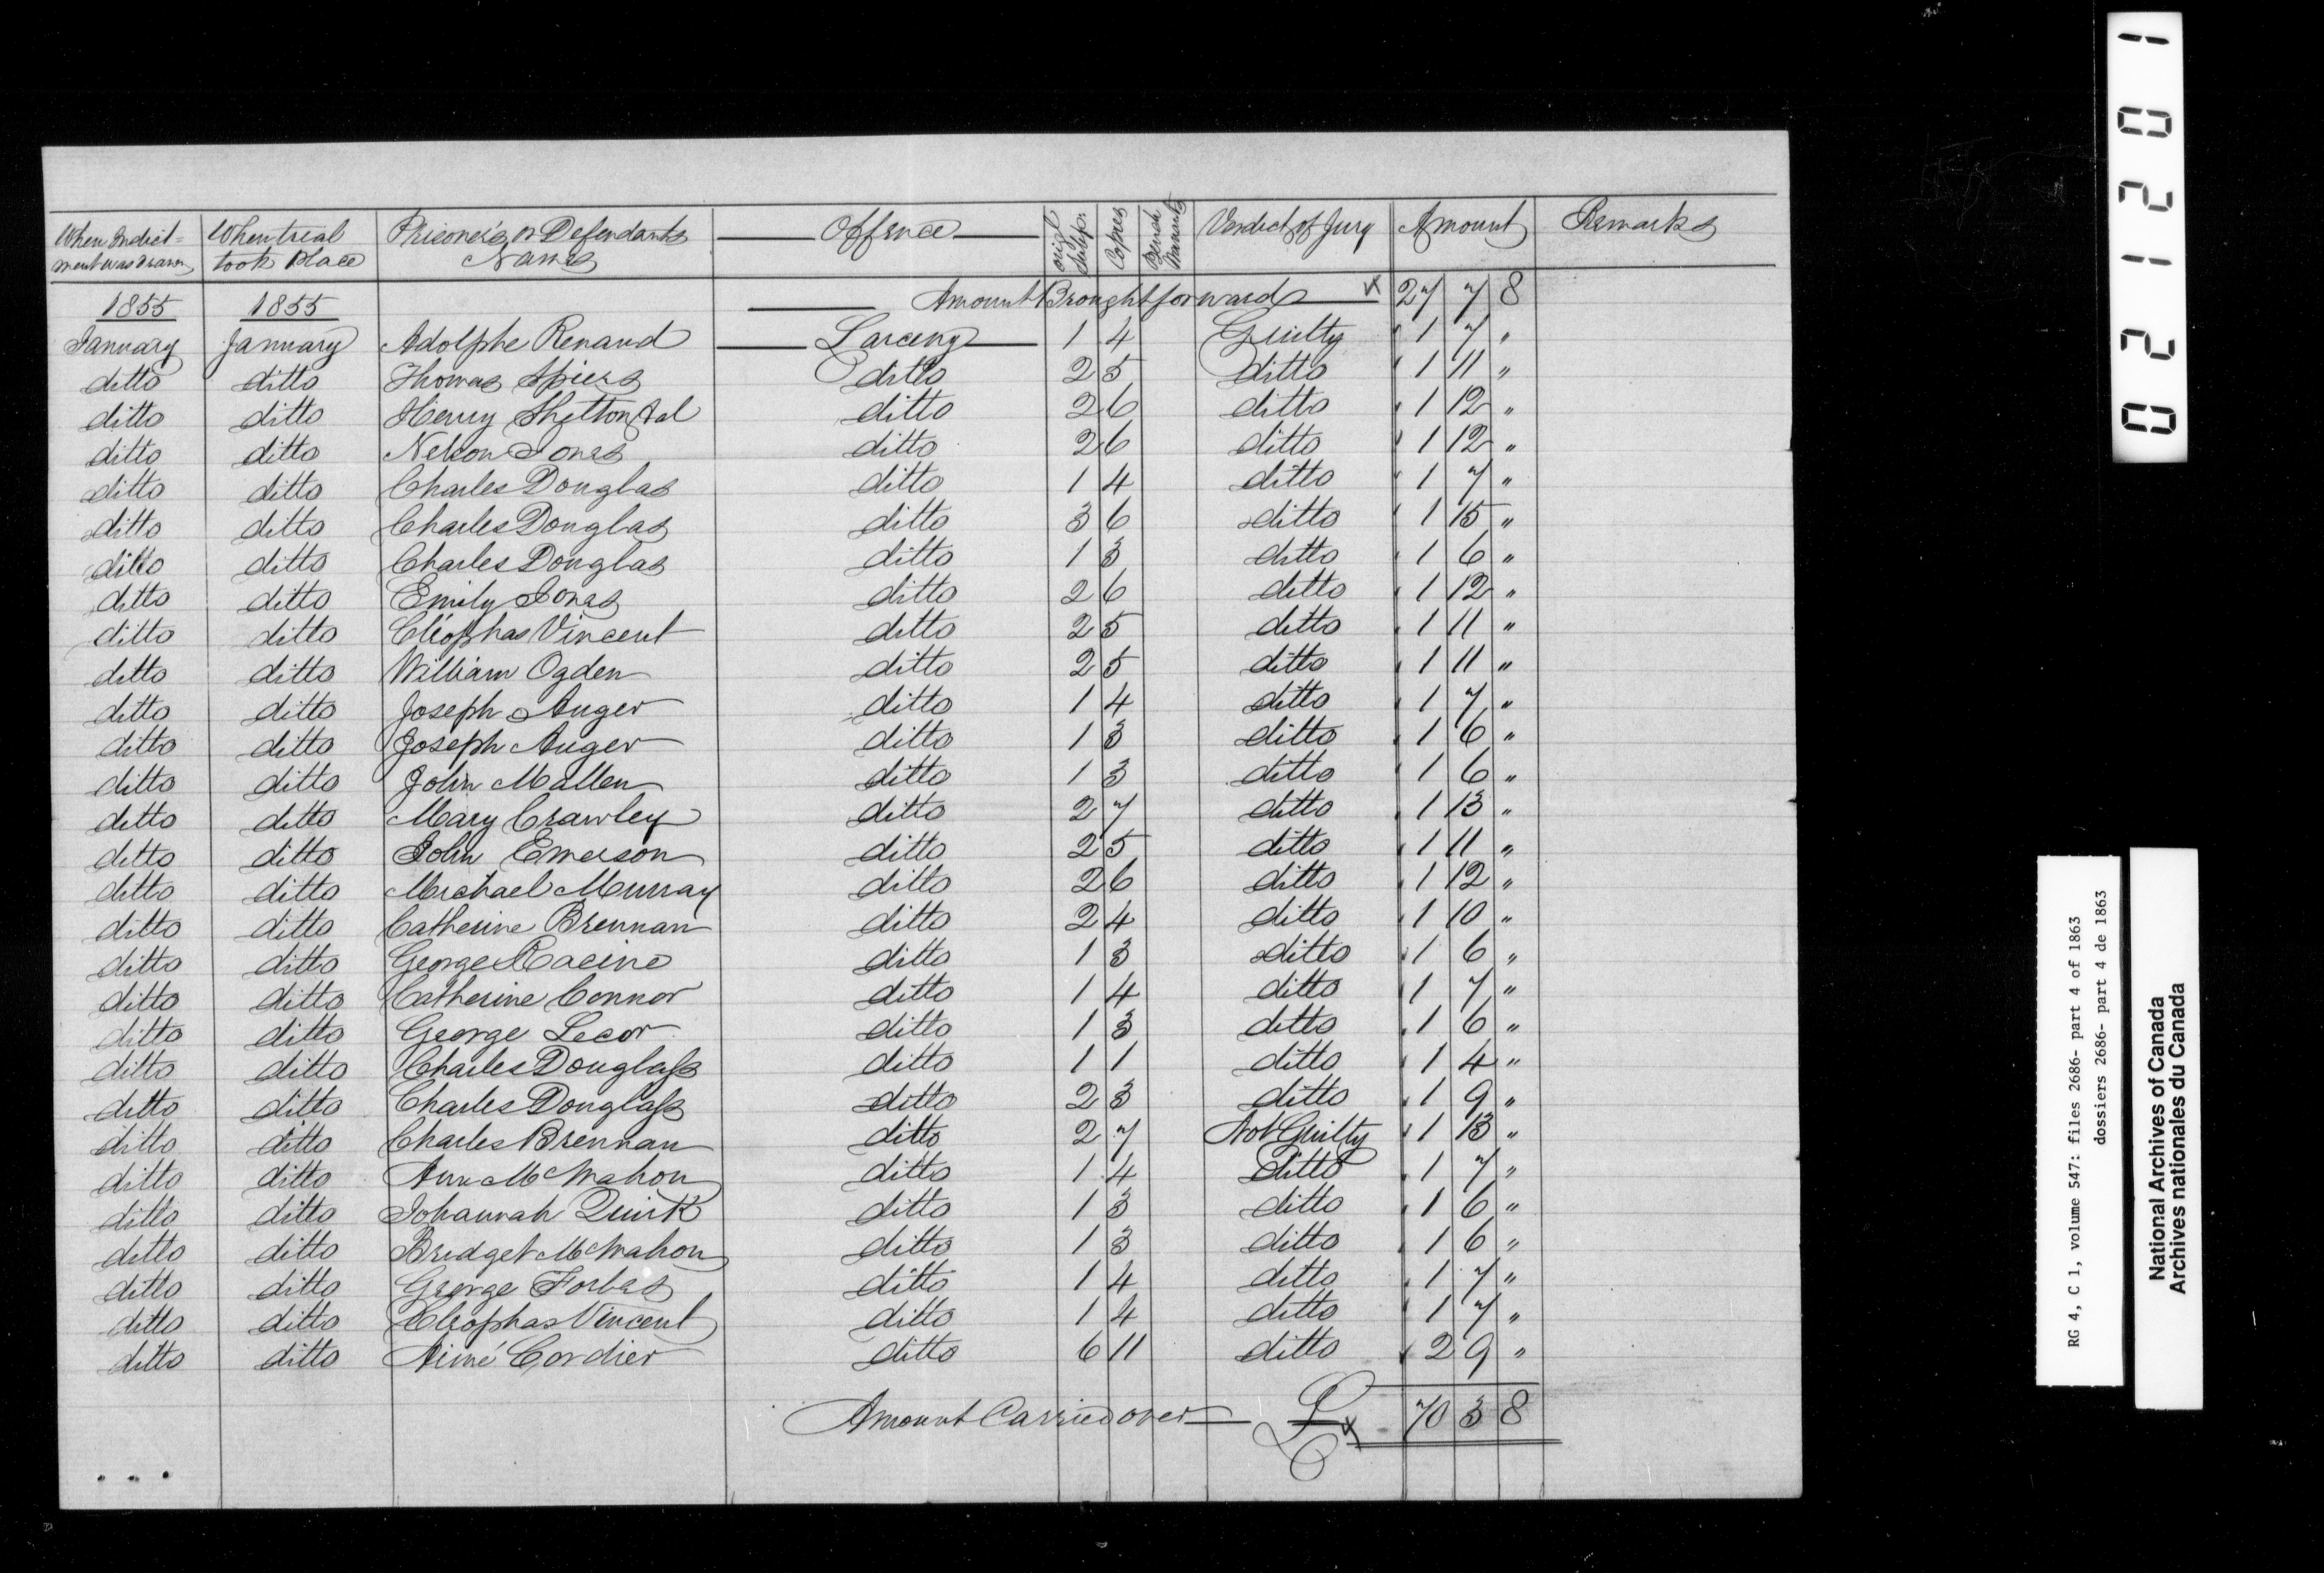 When Indict= ment was drawn When trial took Place Prisoner's or Defendants Names Offence Origl Subpa. Copies Bench Warrants Verdict of Jury Amount Remarks
1855 1855 Amount Brought forward 27 7 8
January January Adolphe Renaud Larceny 1 4 Guilty 1 7 "
ditto ditto Thomas Spiers ditto 2 5 ditto 1 11 "
ditto ditto Henry Shelton & al ditto 2 6 ditto 1 12 "
ditto ditto Nelson Jones ditto 2 6 ditto 1 12 "
ditto ditto Charles Douglas ditto 1 4 ditto 1 7 "
ditto ditto Charles Douglas ditto 3 6 ditto 1 15 "
ditto ditto Charles Douglas ditto 1 3 ditto 1 6 "
ditto ditto Emily Jones ditto 2 6 ditto 1 12 "
ditto ditto Cléophas Vincent ditto 2 5 ditto 1 11 "
ditto ditto William Ogden ditto 2 5 ditto 1 11 "
ditto ditto Joseph Auger ditto 1 4 ditto 1 7 "
ditto ditto Joseph Auger ditto 1 3 ditto 1 6 "
ditto ditto John Mallen ditto 1 3 ditto 1 6 "
ditto ditto Mary Crawley ditto 2 7 ditto 1 13 "
ditto ditto John Emerson ditto 2 5 ditto 1 11 "
ditto ditto Michael Murray ditto 2 6 ditto 1 12 "
ditto ditto Catherine Brennan ditto 2 4 ditto 1 10 "
ditto ditto George Racine ditto 1 3 ditto 1 6 "
ditto ditto Catherine Connor ditto 1 4 ditto 1 7 "
ditto ditto George Lecor ditto 1 3 ditto 1 6 "
ditto ditto Charles Douglass ditto 1 1 ditto 1 4 "
ditto ditto Charles Douglass ditto 2 3 ditto 1 9 "
ditto ditto Charles Brennan ditto 2 7 Not Guilty 1 13 "
ditto ditto Ann McMahon ditto 1 4 ditto 1 7 "
ditto ditto Johannah Quirk ditto 1 3 ditto 1 6 "
ditto ditto Bridget McMahon ditto 1 3 ditto 1 6 "
ditto ditto George Forbes ditto 1 4 ditto 1 7 "
ditto ditto Cleophas Vincent ditto 1 4 ditto 1 7 "
ditto ditto Aimé Cordier ditto 6 11 ditto 2 9 "
Amount Carried over £ 70 3 8
021201
RG 4, C 1, volume 547: files 2686- part 4 of 1863
dossiers 2686- part 4 de 1863
National Archives of Canada
Archives nationales du Canada